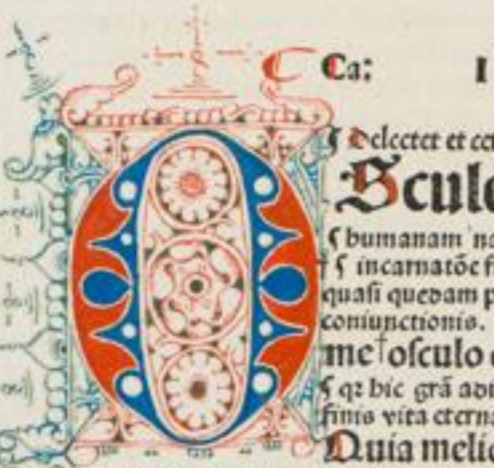 O
Ca: I
¶ Delectet et
Sculo
¶ humanam na
† ¶ incarnatōe f
quasi quedam p
coniunctionis.
me†osculo o
¶ qz hic grā adu
finis vita eterna
Quia melio